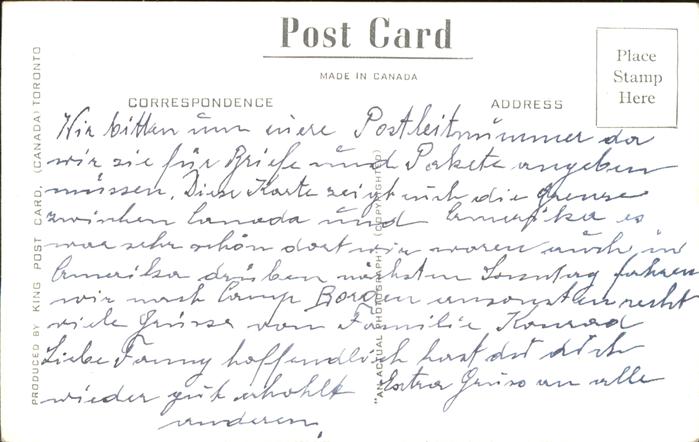 Post Card
MADE IN CANADA
Place
Stamp
Here
CORRESPONDENCE
ADDRESS
Wir bitten um eiere Postleitnummer da
wir sie für Briefe und Pakete angeben
müssen. Diese Karte zeigt euch die grense
zwischen Canada und Amerika es
war sehr schön dort wir waren auch in
Amerika drüben nächsten Sonntag fahren
wir nach Camp Borden ansonsten recht
viele Grüsse von Familie Konrad
Liebe Fanny hoffendlich hast du dich
wieder gut erhohlt Extra Gruss an alle
anderen.
PRODUCED BY KING POST CARD, (CANADA) TORONTO
"AN ACTUAL PHOTOGRAPH" (COPYRIGHTED)